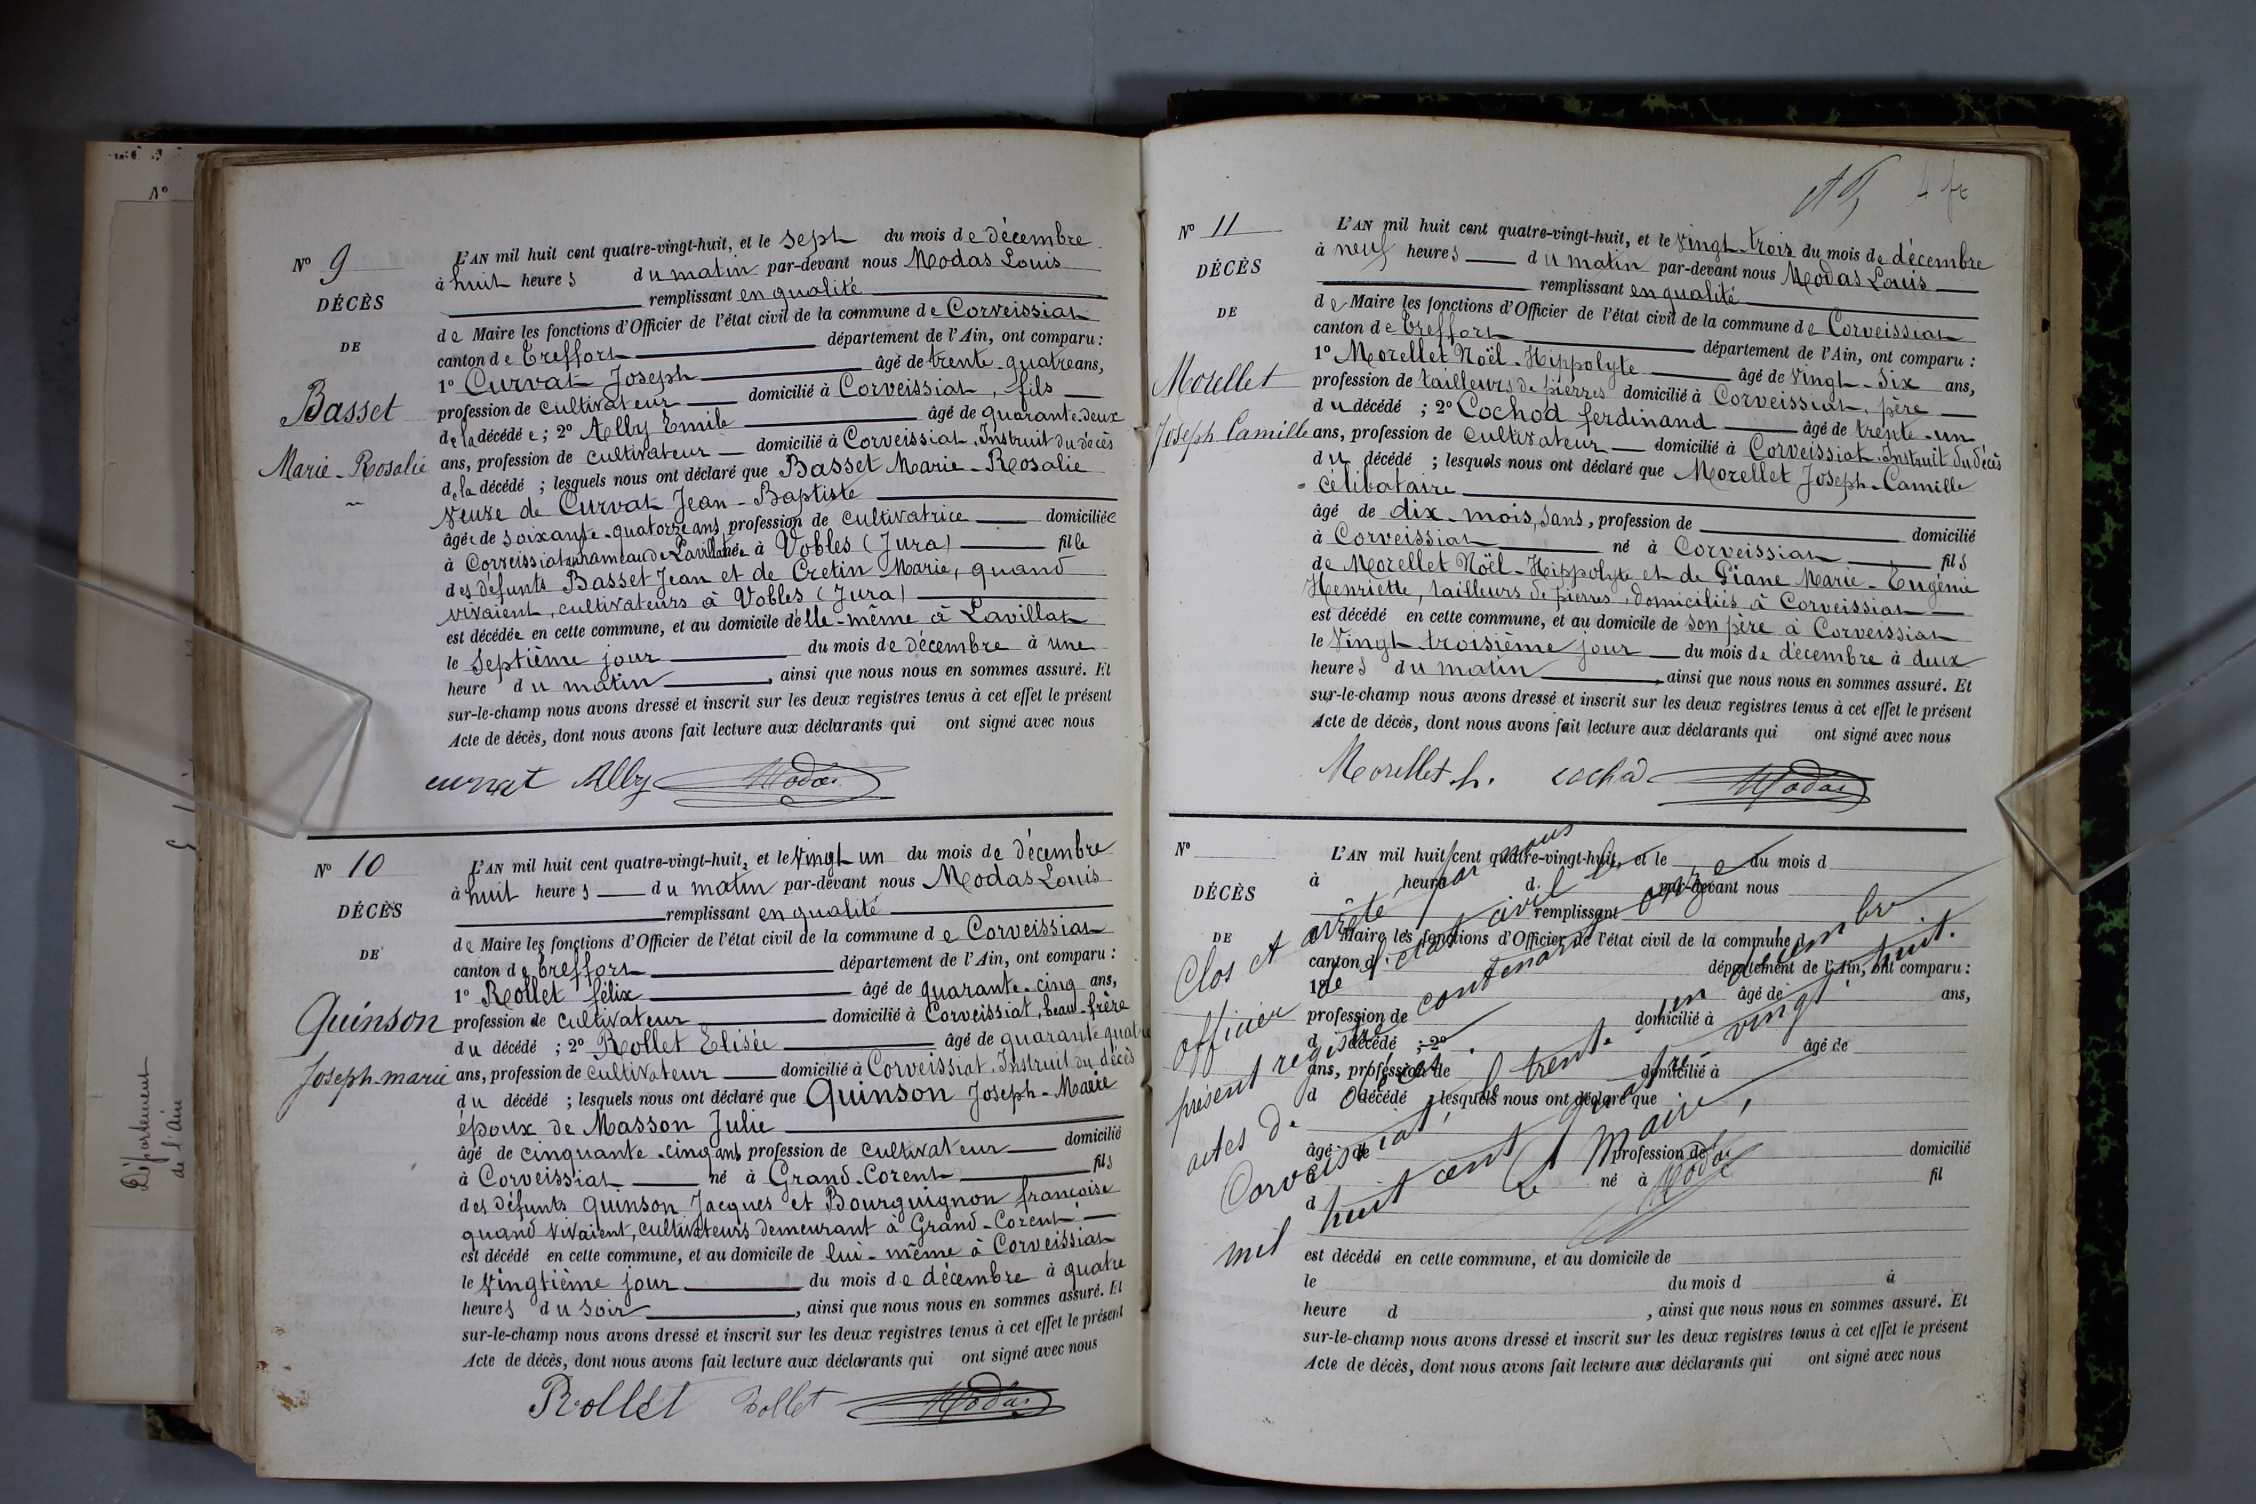 Nº 9
DÉCÈS
DE
Basset
Marie-Rosalie
L'AN mil huit cent quatre-vingt-huit, et le sept du mois de décembre
à huit heures du matin par-devant nous Modas Louis
remplissant en qualité
de Maire les fonctions d'Officier de l'état civil de la commune de Corveissiat
canton de Treffort département de l'Ain, ont comparu :
1º Curvat Joseph âgé de trente-quatre ans,
profession de cultivateur domicilié à Corveissiat, fils
de la décédée ; 2º Alby Emile âgé de quarante-deux
ans, profession de cultivateur domicilié à Corveissiat, Instruit du décès
de la décédé ; lesquels nous ont déclaré que Basset Marie-Rosalie
veuve de Curvat Jean-Baptiste
âgée de soixante-quatorze ans profession de cultivatrice domiciliée
à Corveissiat hameau de Lavillat née à Vobles (Jura) fille
des défunts Basset Jean et de Cretin Marie, quand
vivaient, cultivateurs à Vobles (Jura)
est décédée en cette commune, et au domicile d'elle-même à Lavillat
le septième jour du mois de décembre à une
heure du matin, ainsi que nous nous en sommes assuré. Et
sur-le-champ nous avons dressé et inscrit sur les deux registres tenus à cet effet le présent
Acte de décès, dont nous avons fait lecture aux déclarants qui ont signé avec nous
curvat Alby Modas
Nº 10
DÉCÈS
DE
Quinson
Joseph-marie
L'AN mil huit cent quatre-vingt-huit, et le vingt un du mois de décembre
à huit heures du matin par-devant nous Modas Louis
remplissant en qualité
de Maire les fonctions d'Officier de l'état civil de la commune de Corveissiat
canton de Treffort département de l'Ain, ont comparu :
1º Rollet félix âgé de quarante-cinq ans,
profession de cultivateur domicilié à Corveissiat, beau-frère
du décédé ; 2º Rollet Elisée âgé de quarante quatre
ans, profession de cultivateur domicilié à Corveissiat. Instruit du décès
du décédé ; lesquels nous ont déclaré que Quinson Joseph-Marie
époux de Masson Julie
âgé de cinquante-cinq ans profession de cultivateur domicilié
à Corveissiat né à Grand-Corent fils
des défunts Quinson Jacques et Bourguignon françoise
quand vivaient, cultivateurs demeurant à Grand-Corent
est décédé en cette commune, et au domicile de lui-même à Corveissiat
le vingtième jour du mois de décembre à quatre
heures du soir, ainsi que nous nous en sommes assuré. Et
sur-le-champ nous avons dressé et inscrit sur les deux registres tenus à cet effet le présent
Acte de décès, dont nous avons fait lecture aux déclarants qui ont signé avec nous
Rollet Rollet Modas
Nº 11
DÉCÈS
DE
Morellet
Joseph Camille
L'AN mil huit cent quatre-vingt-huit, et le vingt-trois du mois de décembre
à neuf heures du matin par-devant nous Modas Louis
remplissant en qualité
de Maire les fonctions d'Officier de l'état civil de la commune de Corveissiat
canton de Treffort département de l'Ain, ont comparu :
1º Morellet Noël-Hippolyte âgé de vingt-six ans,
profession de tailleurs de pierres domicilié à Corveissiat, père
du décédé ; 2º Cochod ferdinand âgé de trente-un
ans, profession de cultivateur domicilié à Corveissiat. Instruit du décès
du décédé ; lesquels nous ont déclaré que Morellet Joseph-Camille
célibataire
âgé de dix-mois, sans, profession de domicilié
à Corveissiat né à Corveissiat fils
de Morellet Noël-Hippolyte et de Piane Marie-Eugénie
Henriette, tailleurs de pierres, domiciliés à Corveissiat
est décédé en cette commune, et au domicile de son père à Corveissiat
le vingt troisième jour du mois de décembre à deux
heures du matin, ainsi que nous nous en sommes assuré. Et
sur-le-champ nous avons dressé et inscrit sur les deux registres tenus à cet effet le présent
Acte de décès, dont nous avons fait lecture aux déclarants qui ont signé avec nous
Morellet h. cochod Modas
Nº
DÉCÈS
DE
L'AN mil huit cent quatre-vingt-huit, et le du mois d
à heure d par-devant nous
remplissant
d Maire les fonctions d'Officier de l'état civil de la commune d
canton d département de l'Ain, ont comparu :
1º âgé de ans,
profession de domicilié à
d décédé ; 2º âgé de
ans, profession de domicilié à
d décédé ; lesquels nous ont déclaré que
âgé de profession de domicilié
à né à fil
d
est décédé en cette commune, et au domicile de
le du mois d à
heure d , ainsi que nous nous en sommes assuré. Et
sur-le-champ nous avons dressé et inscrit sur les deux registres tenus à cet effet le présent
Acte de décès, dont nous avons fait lecture aux déclarants qui ont signé avec nous
Clos et arrêté par nous
officier de l'état civil le
présent registre contenant onze
actes de décès.
Corveissiat, le trente-un décembre
mil huit cent quatre-vingt-huit.
Le Maire,
Modas
Département
de l'Ain